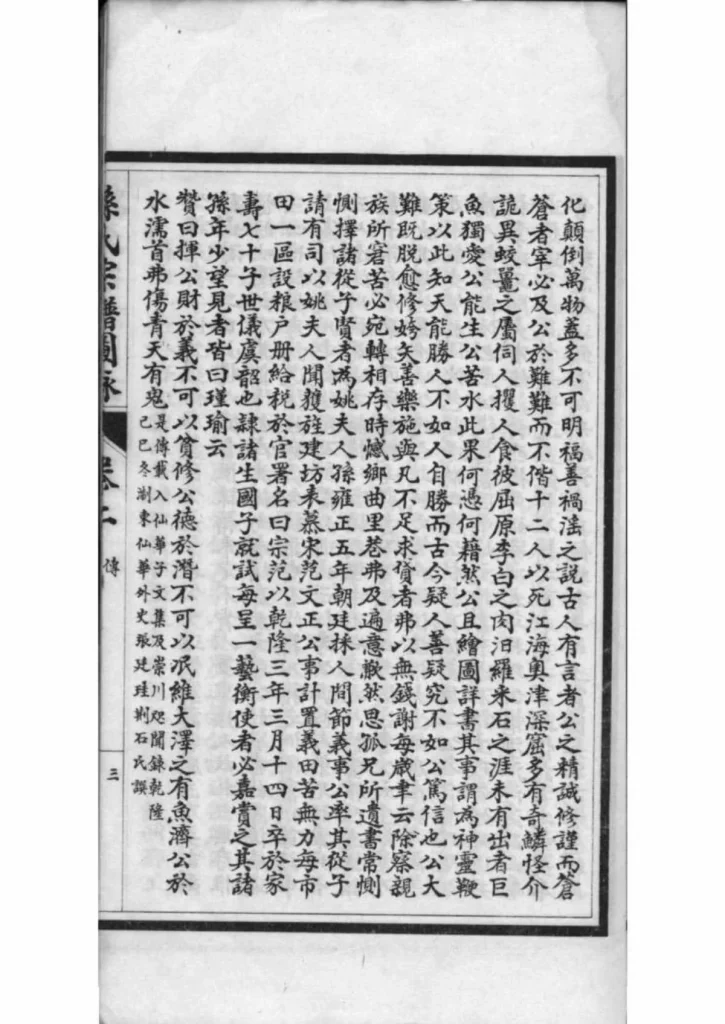 化顛倒萬物蓋多不可明福善禍滛之説古人有言者公之精誠修謹而蒼
蒼者宰必及公於難難而不偕十二人以死江海奥津深窟多有奇鱗怪介
詭異蛟鼉之屬伺人攫人食彼屈原李白之肉汨羅采石之涯未有出者巨
魚獨愛公能生公苦水此果何憑何藉然公且繪圖詳書其事謂為神靈鞭
策以此知天能勝人不如人自勝而古今疑人善疑究不如公篤信也公大
難既脱愈修姱矢善樂施與凡不足求貸者弗以無錢謝每歲聿云除察親
族所窘苦必宛轉相存時憾鄉曲里巷弗及遍意歉然思孤兄所遺書常惻
惻擇諸從子賢者為姚夫人孫雍正五年朝廷採人間節義事公率其從子
請有司以姚夫人聞獲旌建坊表慕宋范文正公事計置義田苦無力每市
田一區設粮户册給税於官署名曰宗范以乾隆三年三月十四日卒於家
壽七十子世儀虞韶也隷諸生國子就試每呈一藝衡使者必嘉賞之其諸
孫年少望見者皆曰瑾瑜云
贊曰揮公財於義不可以貧修公德於潛不可以泯維大澤之有魚濟公於
水濡首弗傷青天有鬼
是傳載入仙華子文集及崇川咫聞錄乾隆
己巳冬浙東仙華外史張廷珪判石氏譔
孫氏宗譜圖詠
卷二
傳
三